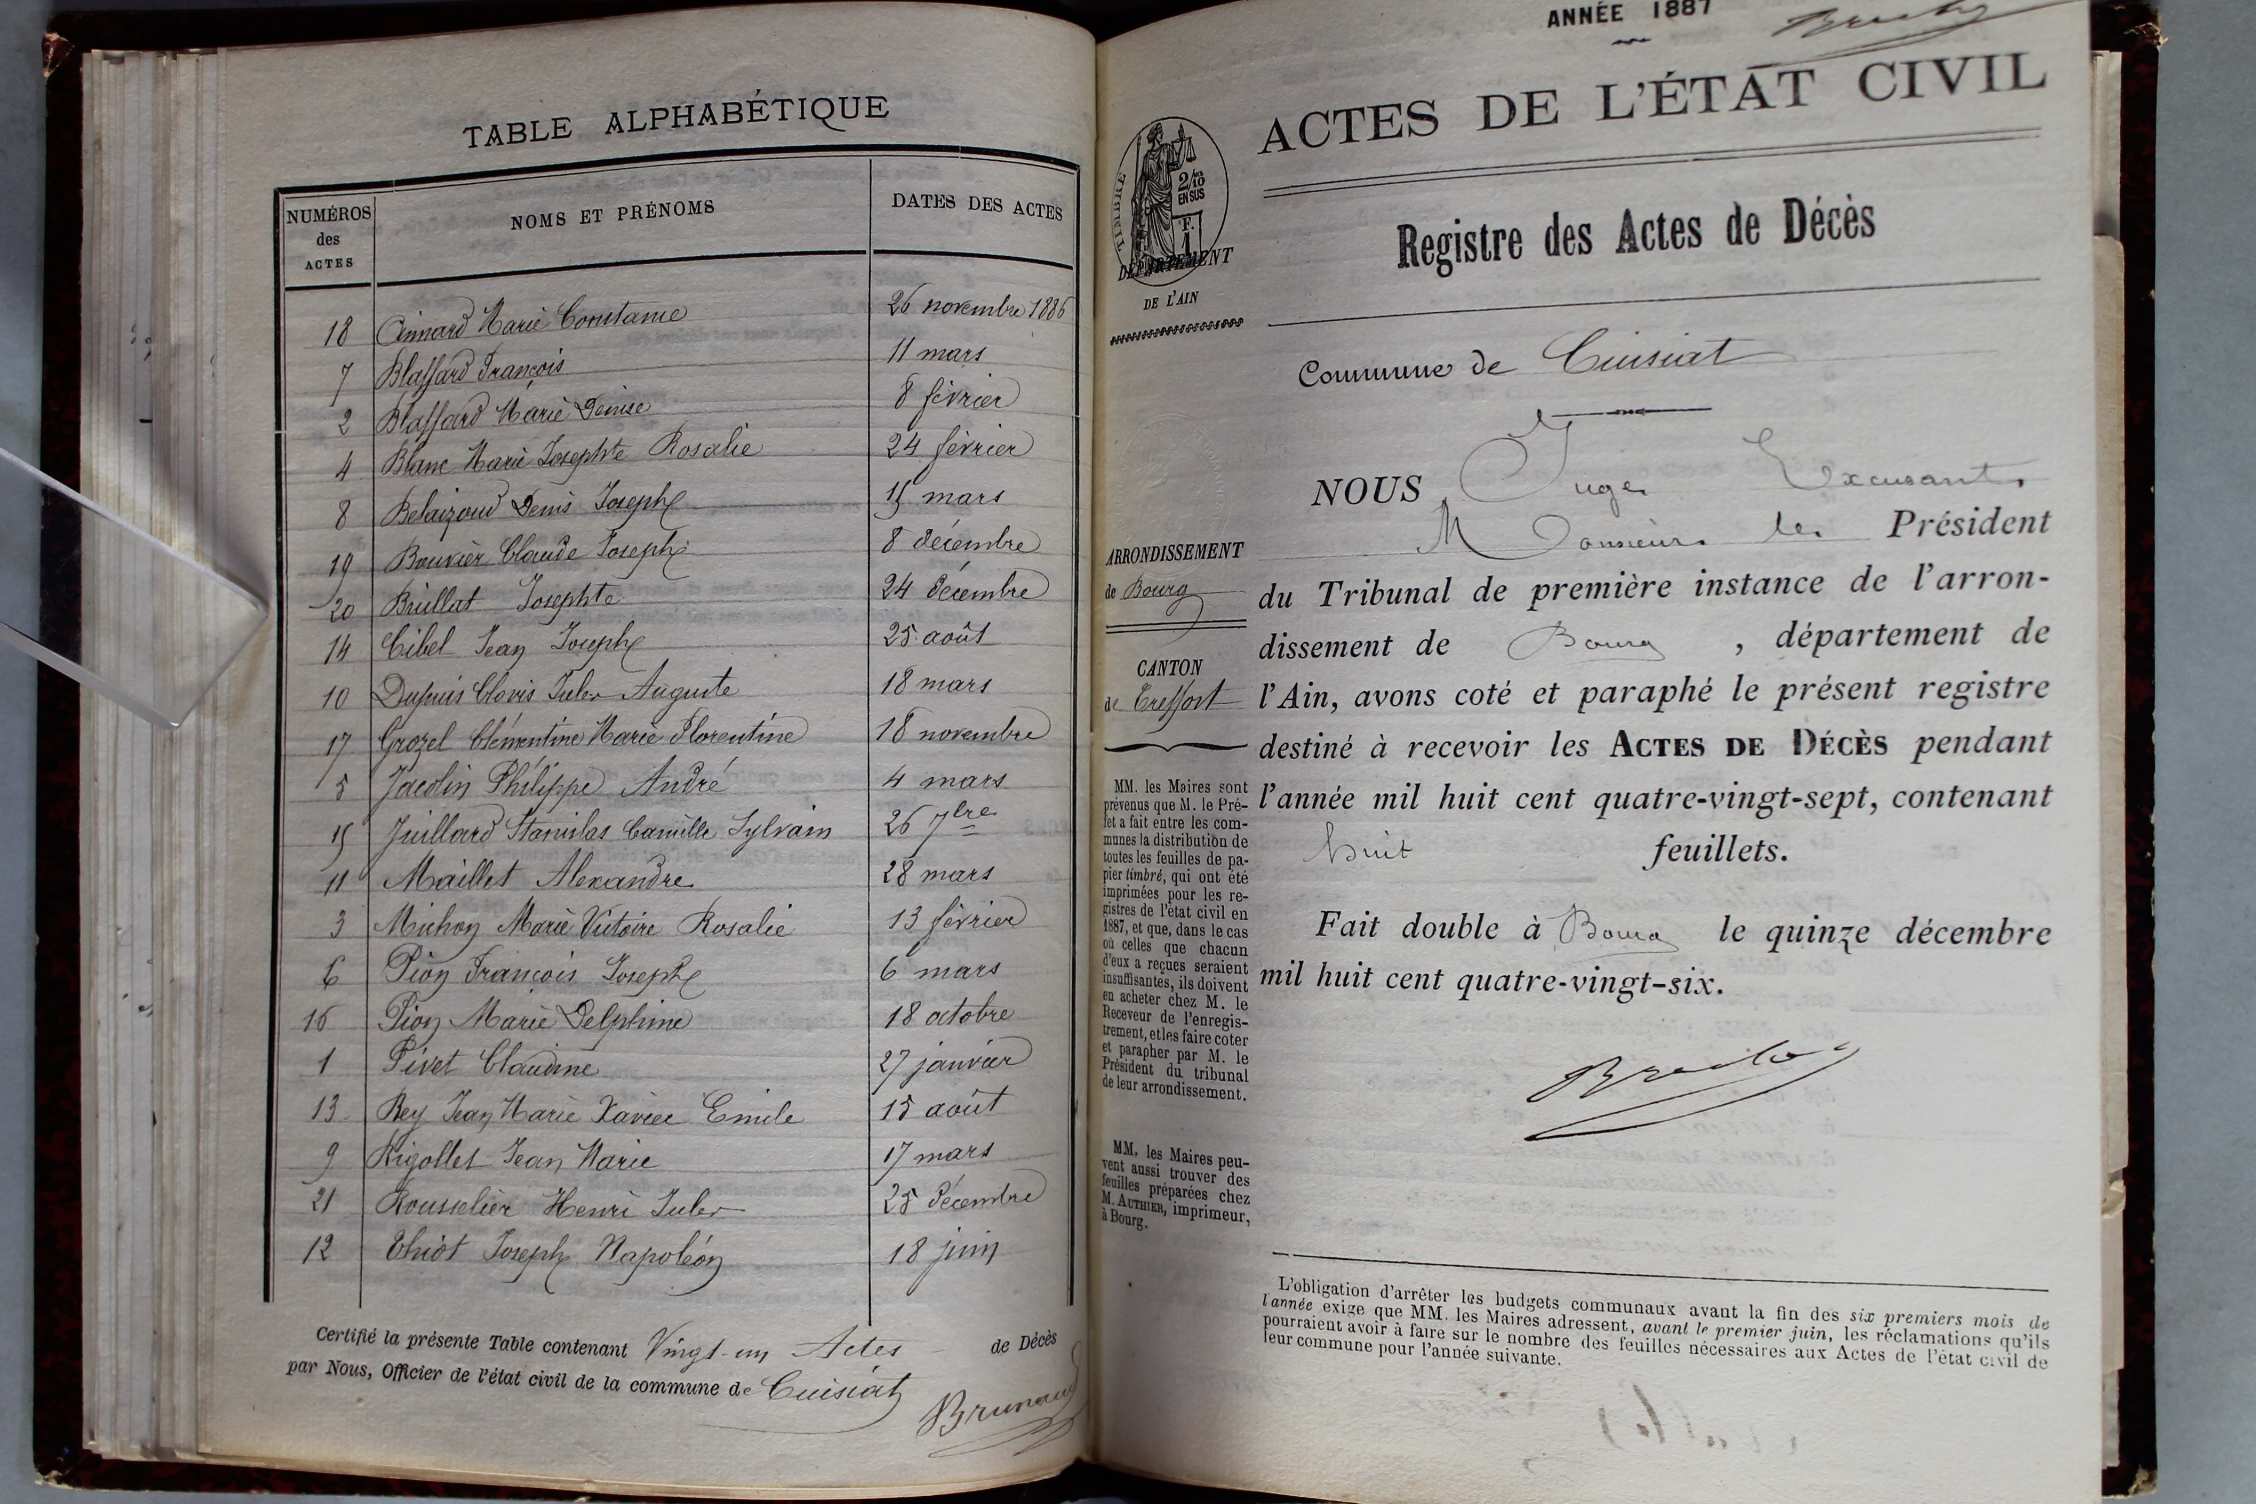 TABLE ALPHABÉTIQUE
NUMÉROS des ACTES NOMS ET PRÉNOMS DATES DES ACTES
18 Aimard Marie Constance 26 novembre 1886
7 Blaffard François 11 mars
2 Blaffard Marie Denise 8 février
4 Blanc Marie Josephte Rosalie 24 février
8 Belaizoud Denis Joseph 15 mars
19 Bouvier Claude Joseph 8 décembre
20 Buillat Josephte 24 décembre
14 Cibel Jean Joseph 25 août
10 Dupuis Clovis Jules Auguste 18 mars
17 Grozel Clémentine Marie Florentine 18 novembre
5 Jacolin Philippe André 4 mars
15 Juillard Stanislas Camille Sylvain 26 7bre
11 Maillet Alexandre 28 mars
3 Michon Marie Victoire Rosalie 13 février
6 Pion François Joseph 6 mars
16 Pion Marie Delphine 18 octobre
1 Pivet Claudine 27 janvier
13 Rey Jean Marie Xavier Emile 15 août
9 Rigollet Jean Marie 17 mars
21 Rousselier Henri Jules 25 décembre
12 Thiot Joseph Napoléon 18 juin
Certifié la présente Table contenant Vingt-un Actes de Décès
par Nous, Officier de l'état civil de la commune de Cuisiat
Brunaud
ANNÉE 1887
ACTES DE L'ÉTAT CIVIL
TIMBRE
2/10
EN SUS
1 F.
DÉPARTEMENT
DE L'AIN
Registre des Actes de Décès
Commune de Cuisiat
NOUS Juge Excusant
Monsieur le Président
du Tribunal de première instance de l'arron-
dissement de Bourg, département de
l'Ain, avons coté et paraphé le présent registre
destiné à recevoir les ACTES DE DÉCÈS pendant
l'année mil huit cent quatre-vingt-sept, contenant
huit feuillets.
Fait double à Bourg le quinze décembre
mil huit cent quatre-vingt-six.
ARRONDISSEMENT
de Bourg
CANTON
de Treffort
MM. les Maires sont
prévenus que M. le Pré-
fet a fait entre les com-
munes la distribution de
toutes les feuilles de pa-
pier timbré, qui ont été
imprimées pour les re-
gistres de l'état civil en
1887, et que, dans le cas
où celles que chacun
d'eux a reçues seraient
insuffisantes, ils doivent
en acheter chez M. le
Receveur de l'enregis-
trement, et les faire coter
et parapher par M. le
Président du tribunal
de leur arrondissement.
MM. les Maires peu-
vent aussi trouver des
feuilles préparées chez
M. AUTHIER, imprimeur,
à Bourg.
L'obligation d'arrêter les budgets communaux avant la fin des six premiers mois de
l'année exige que MM. les Maires adressent, avant le premier juin, les réclamations qu'ils
pourraient avoir à faire sur le nombre des feuilles nécessaires aux Actes de l'état civil de
leur commune pour l'année suivante.